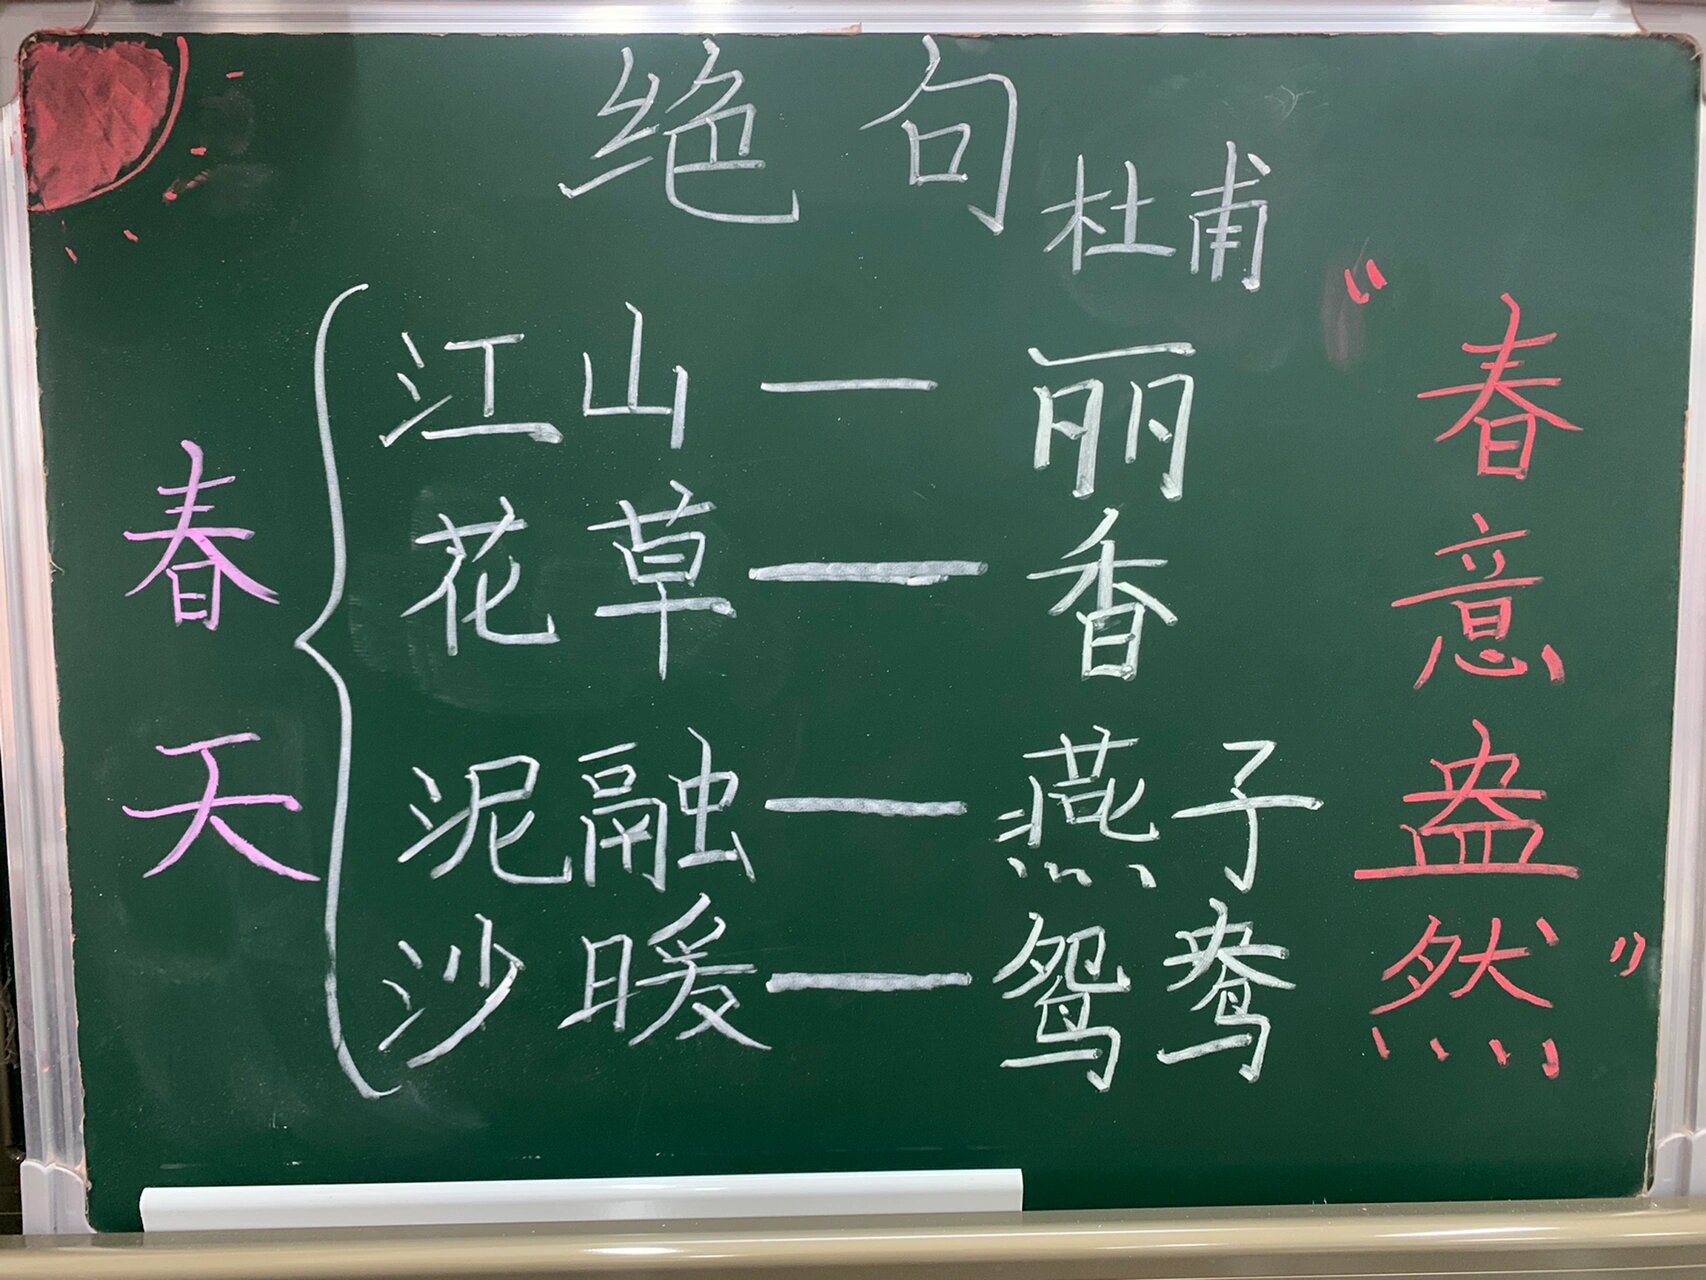 绝句
杜甫
春天
江山—丽
花草—香
泥融—燕子
沙暖—鸳鸯
“春意盎然”